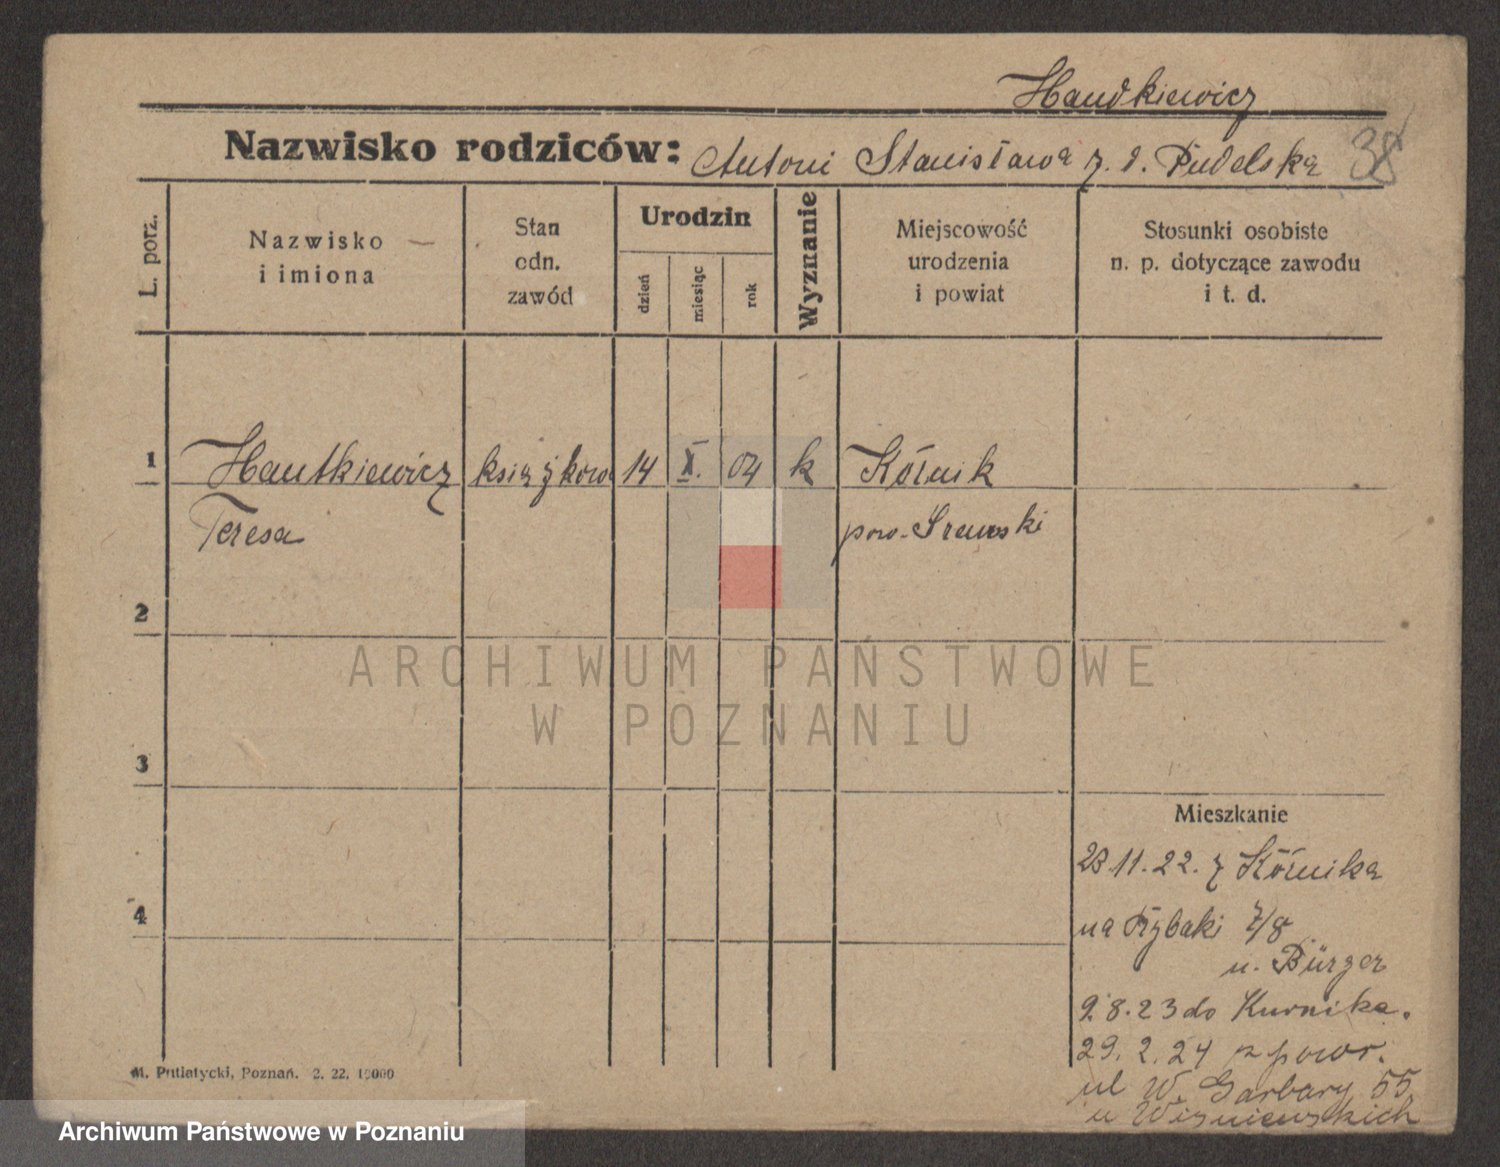 Handkiewicz
Nazwisko rodziców: Antoni Stanisława z. d. Pudelska 38
L. porz.
Nazwisko
i imiona
Stan
odn.
zawód
Urodzin
dzień
miesiąc
rok
Wyznanie
Miejscowość
urodzenia
i powiat
Stosunki osobiste
n. p. dotyczące zawodu
i t. d.
1 Hautkiewicz książkowa 14 X. 04 k Kórnik
Teresa pow. Sremski
2
ARCHIWUM PAŃSTWOWE
W POZNANIU
3
Mieszkanie
23.11.22. z Kórnika
4
na Rybaki 7/8
u. Bürger
9.8.23 do Kurnika.
29.2.24 z powr.
ul W. Garbary 55
u Wiśniewskich
M. Putiatycki, Poznań. 2. 22. 15000
Archiwum Państwowe w Poznaniu